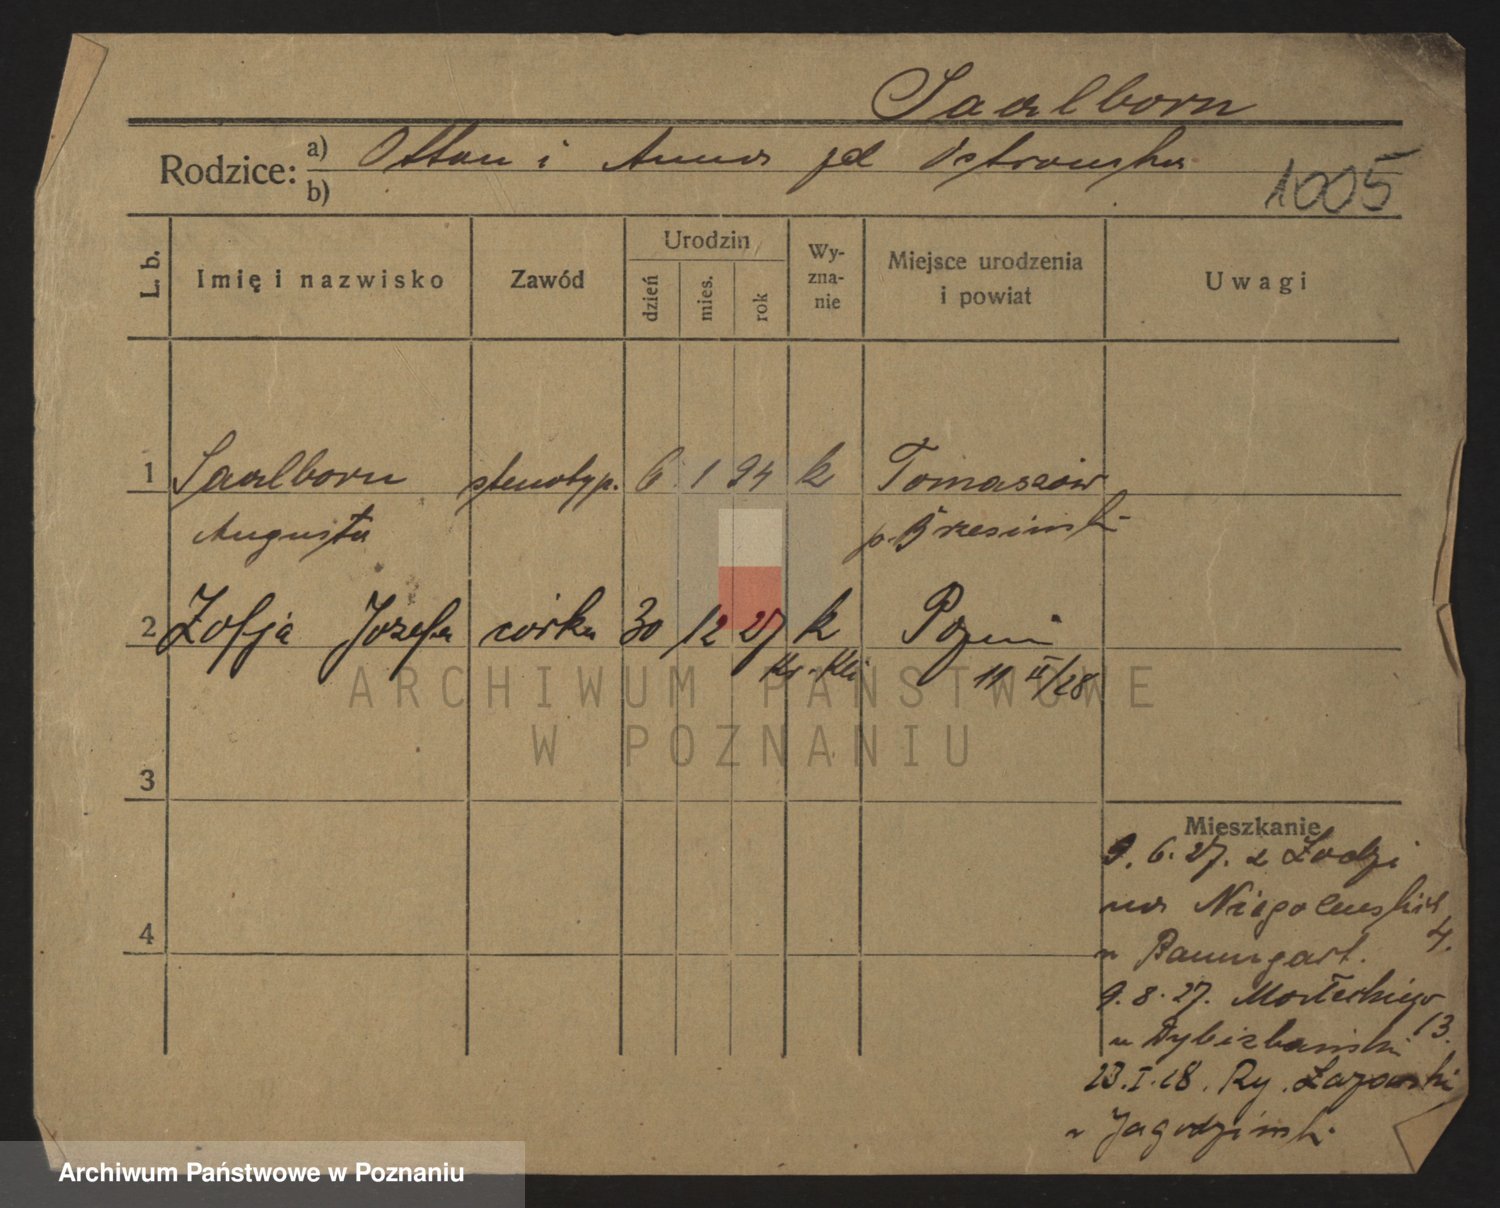 Saalborn
Rodzice: a) Otton i Anna
b)
1005
L. b.
Imię i nazwisko
Zawód
Urodzin
dzień
mies.
rok
Wy-
zna-
nie
Miejsce urodzenia
i powiat
Uwagi
1 Saalborn stenotyp. 6 1 94 k Tomaszów
Augusta p. Brzesiński
2 Zofja Józefa córka 30 12 27 k
11 II/28
ARCHIWUM PAŃSTWOWE
W POZNANIU
3
4
Mieszkanie
9. 6. 27. z Łodzi
na Niegolewskich
4.
u Baumgart.
9. 8. 27.
13.
u
23. I. 28. Ry. Łazarski
u Jagodziński
Archiwum Państwowe w Poznaniu